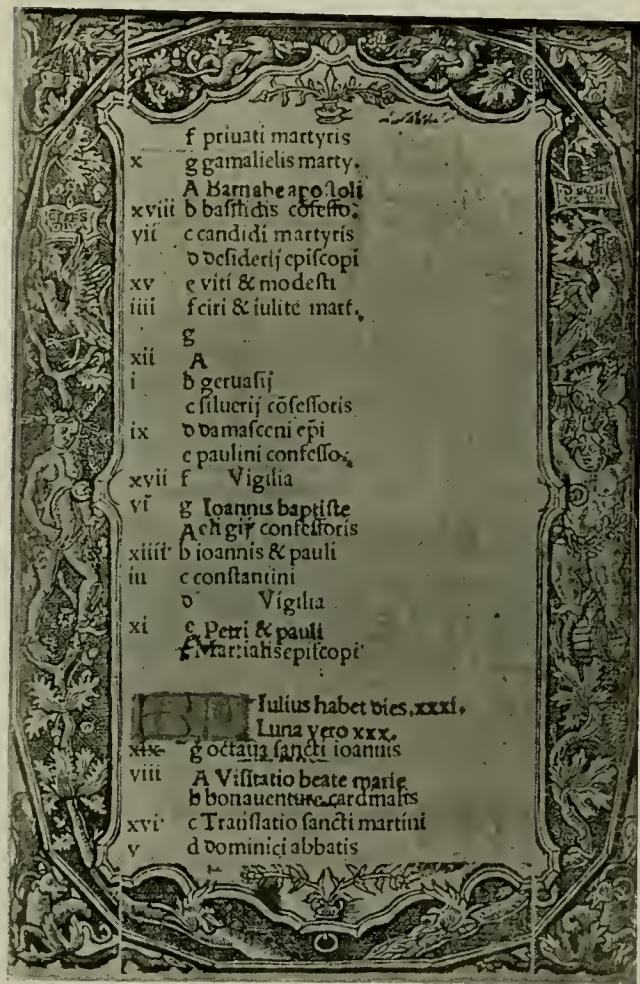 f priuati martyris
x g gamalielis marty.
A Barnabe apostoli
xviii b basilidis cōfesso.
vii c candidi martyris
d desiderij episcopi
xv e viti & modesti
iiii f ciri & iulite mart.
g
xii A
i b geruasij
c siluerij cōfessoris
ix d damasceni epi
e paulini confesso.
xvii f Vigilia
vi g Ioannis baptiste
A confessoris
xiiii b ioannis & pauli
iii c constantini
d Vigilia
xi e Petri & pauli
f Martialis episcopi
Iulius habet dies.xxxi.
Luna vero xxx.
xix g octaua sancti ioannis
viii A Visitatio beate marie
b bonauenture cardinalis
xvi c Translatio sancti martini
v d dominici abbatis